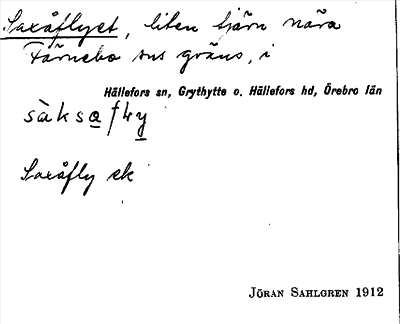 Saxåflyet, liten tjärn nära
Färnebo sns gräns, i
Hällefors sn, Grythytte o. Hällefors hd, Örebro län
sàksa̲fly̲
Saxåfly ek
JÖRAN SAHLGREN 1912